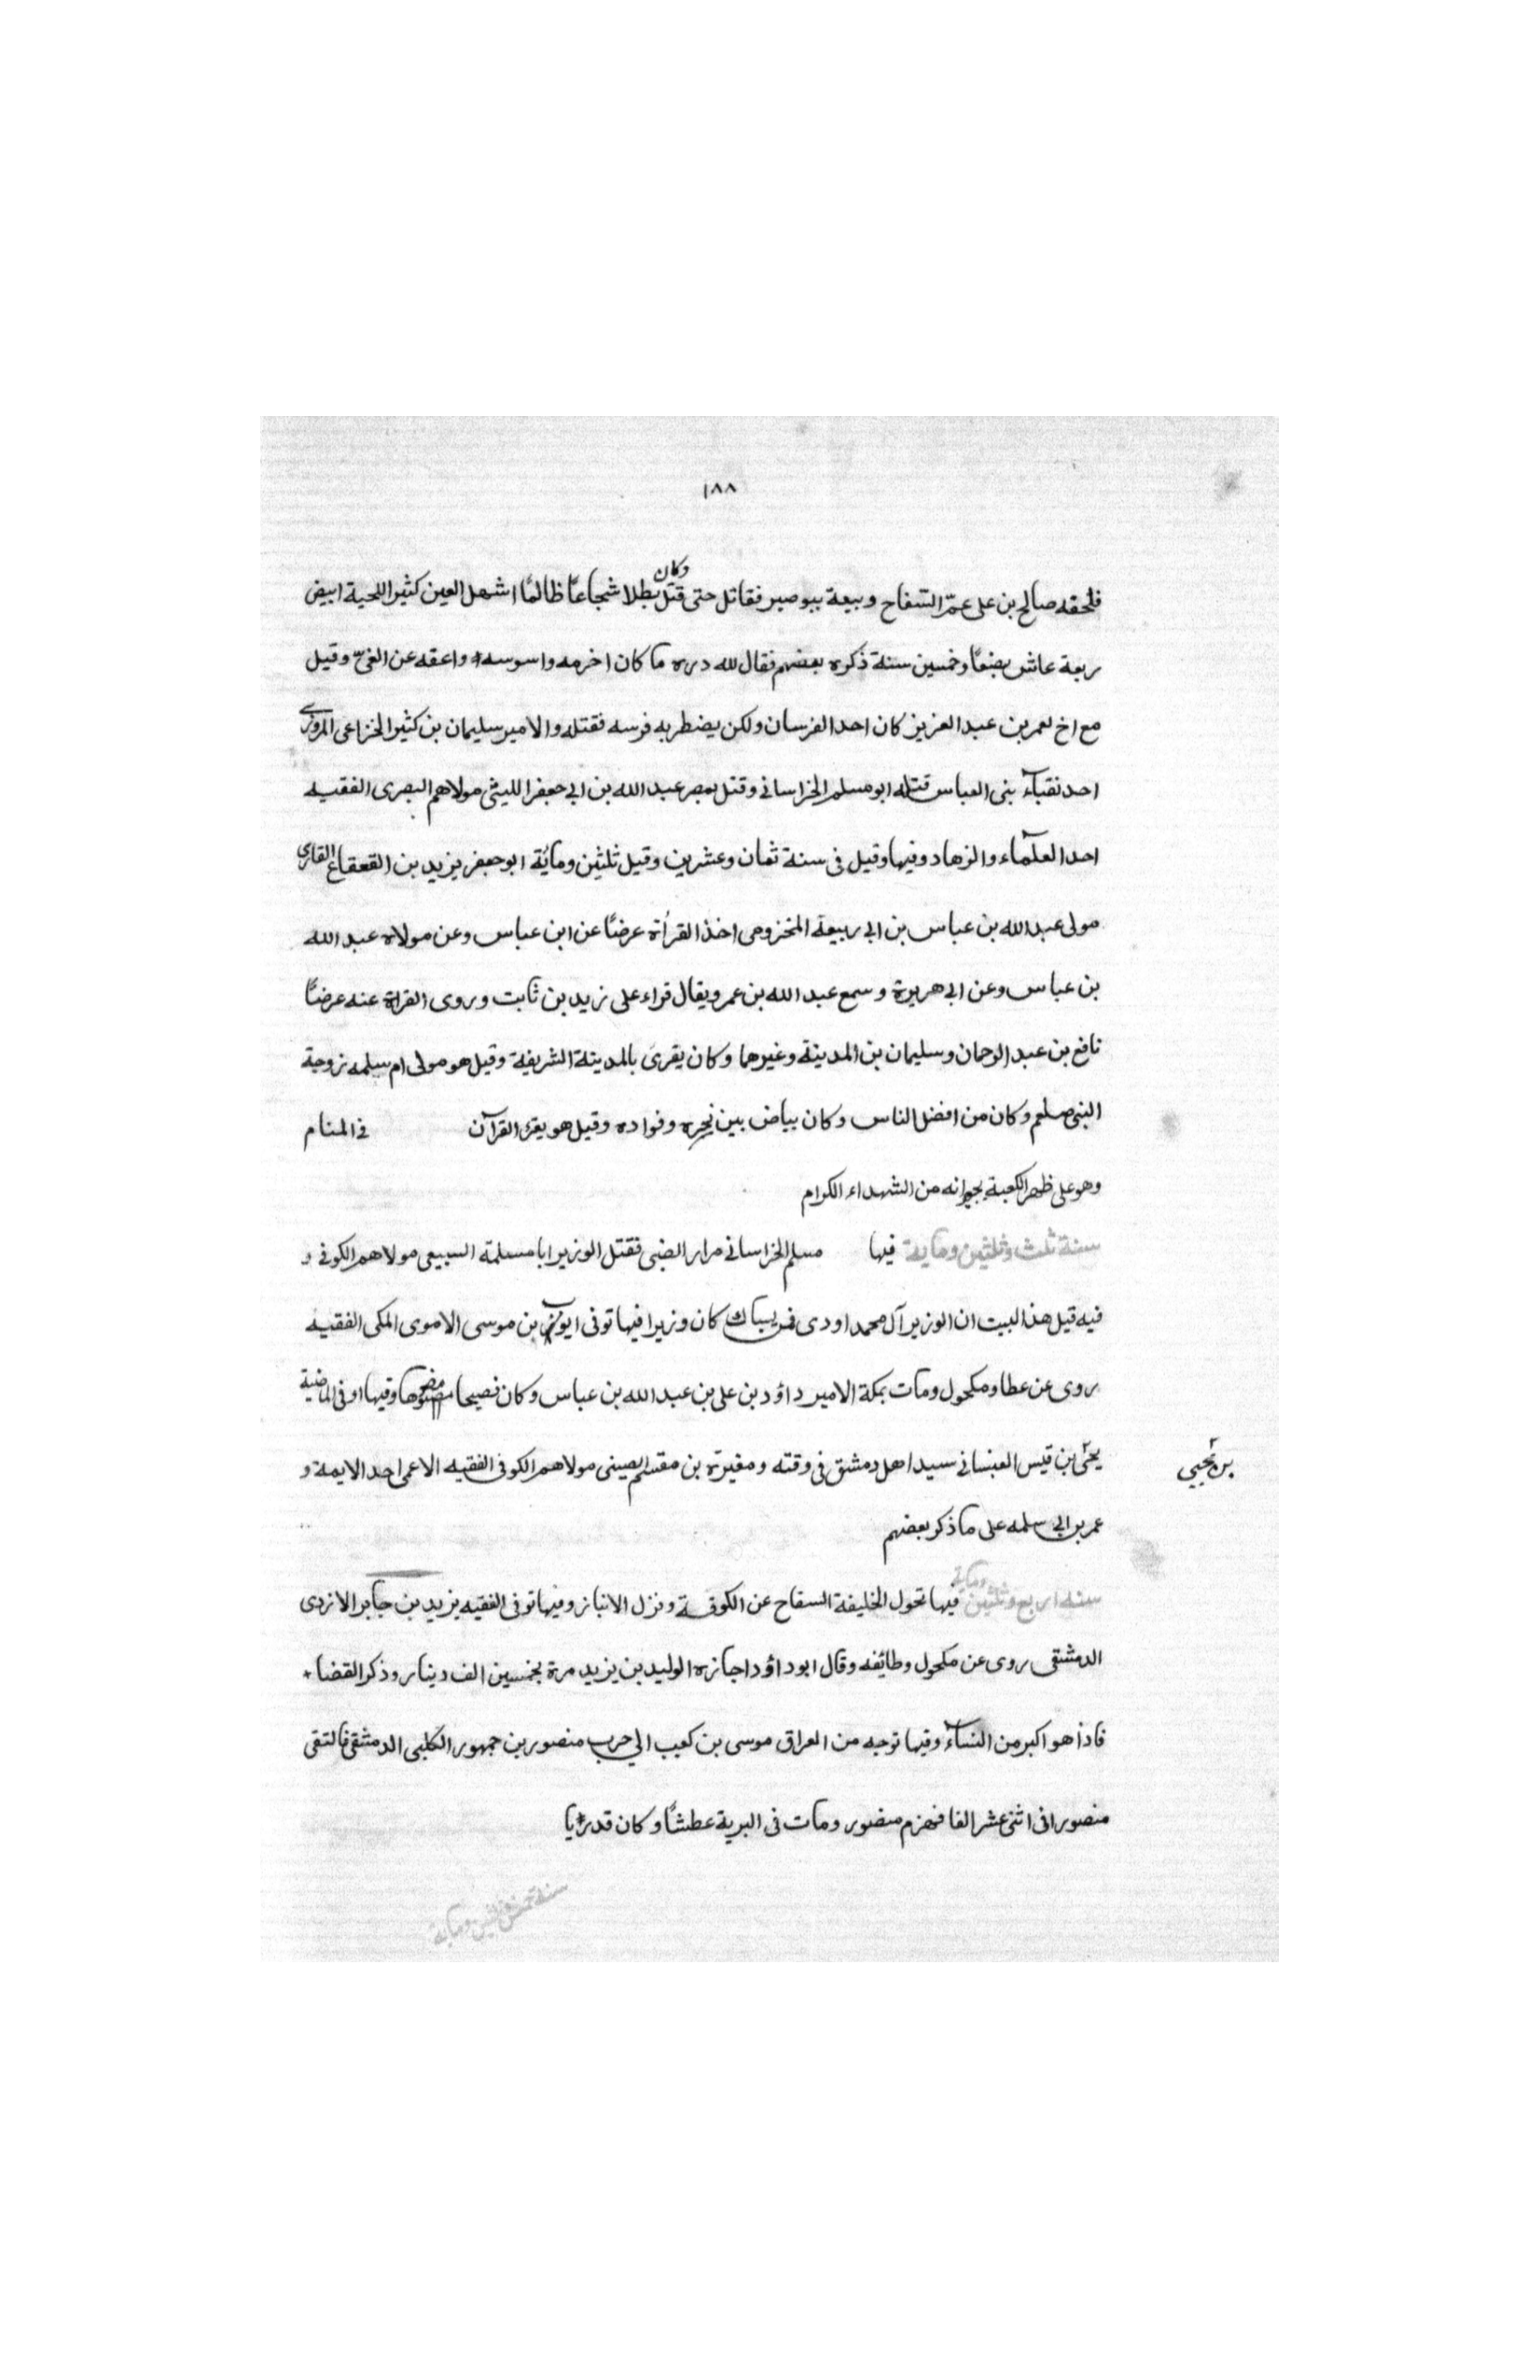 ١٨٨
فلحقه صالح بن على عمّ السّفاح وبيعة ببوصير فقاتل حتى قتل وكان بطلا شجاعًا ظالمًا اشهل العين كثير اللحية ابيض
ربعة عاش بضعًا وخمسين سنة ذكره بعضهم فقال لله دره ما كان اخرمه واسوسه واعقه عن الفىّ وقيل
مع اخ لعمر بن عبد العزيز كان احد الفرسان ولكن يضطر به فرسه فقتله والامير سليمان بن كثير الخزاعى المروزى
احد نقبآء بنى العباس قتله ابو مسلم الخراسانى وقتل بمصر عبد الله بن ابى جعفر الليثى مولاهم البصرى الفقيه
احد العلمآء والزهاد وفيها وقيل فى سنة ثمان وعشرين وقيل ثلثين ومائة ابو جعفر يزيد بن القعقاع القارى
مولى عبد الله بن عباس بن ابى ربيعة المخزومى اخذ القرأة عرضًا عن ابن عباس وعن مولاه عبد الله
بن عباس وعن ابى هريرة وسمع عبد الله بن عمر ويقال قراء على زيد بن ثابت وروى القراة عنه عرضًا
نافع بن عبد الرحمان وسليمان بن المدينة وغيرهما وكان يقرى بالمدينة الشريفة وقيل هو مولى ام سلمه زوجة
النبى صلعم وكان من افضل الناس وكان بياض بين نحره وفواده وقيل هو يقرء القرآن فى المنام
وهو على ظهر الكعبة بجوانه من الشهداء الكرام
سنة ثلث وثلثين وماية فيها مسلم الخراسانى مرار الضبى فقتل الوزير ابا مسلمة السبيعى مولاهم الكوفى و
فيه قيل هذا البيت ان الوزير آل محمد اودى فمن يسباك كان وزيرا فيها توفى ايوب بن موسى الاموى المكى الفقيه
روى عن عطا ومكحول ومات بمكة الامير داؤد بن على بن عبد الله بن عباس وكان فصيحا مفوها وفيها او فى الماضية
يحيى بن قيس الغسانى سيد اهل دمشق فى وقته ومغيرة بن مقسم الصينى مولاهم الكوفى الفقيه الاعمى احد الايمة و
بن يحيى
عمر بن ابى سلمه على ما ذكر بعضهم
سنه اربع وثلثين وماية فيها تحول الخليفة السفاح عن الكوفة ونزل الانباز وفيها توفى الفقيه يزيد بن جابر الازدى
الدمشقى روى عن مكحول وطائفه وقال ابو داؤد اجازه الوليد بن يزيد مرة بخمسين الف دينار وذكر القضاء
فاذا هو اكبر من النسآء وفيها توجه من العراق موسى بن كعب الى حرب منصور بن جمهور الكلبى الدمشقى فالتقى
منصورا فى اثنى عشر الفا فهزم منصور ومات فى البرية عطشًا وكان قدريا
سنة خمس وثلثين وماية